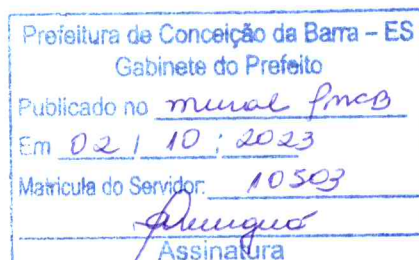 Prefeitura de Conceição da Barra – ES
Gabinete do Prefeito
Publicado no mural PMCB
Em 02 / 10 / 2023
Matricula do Servidor: 10503
Assinatura